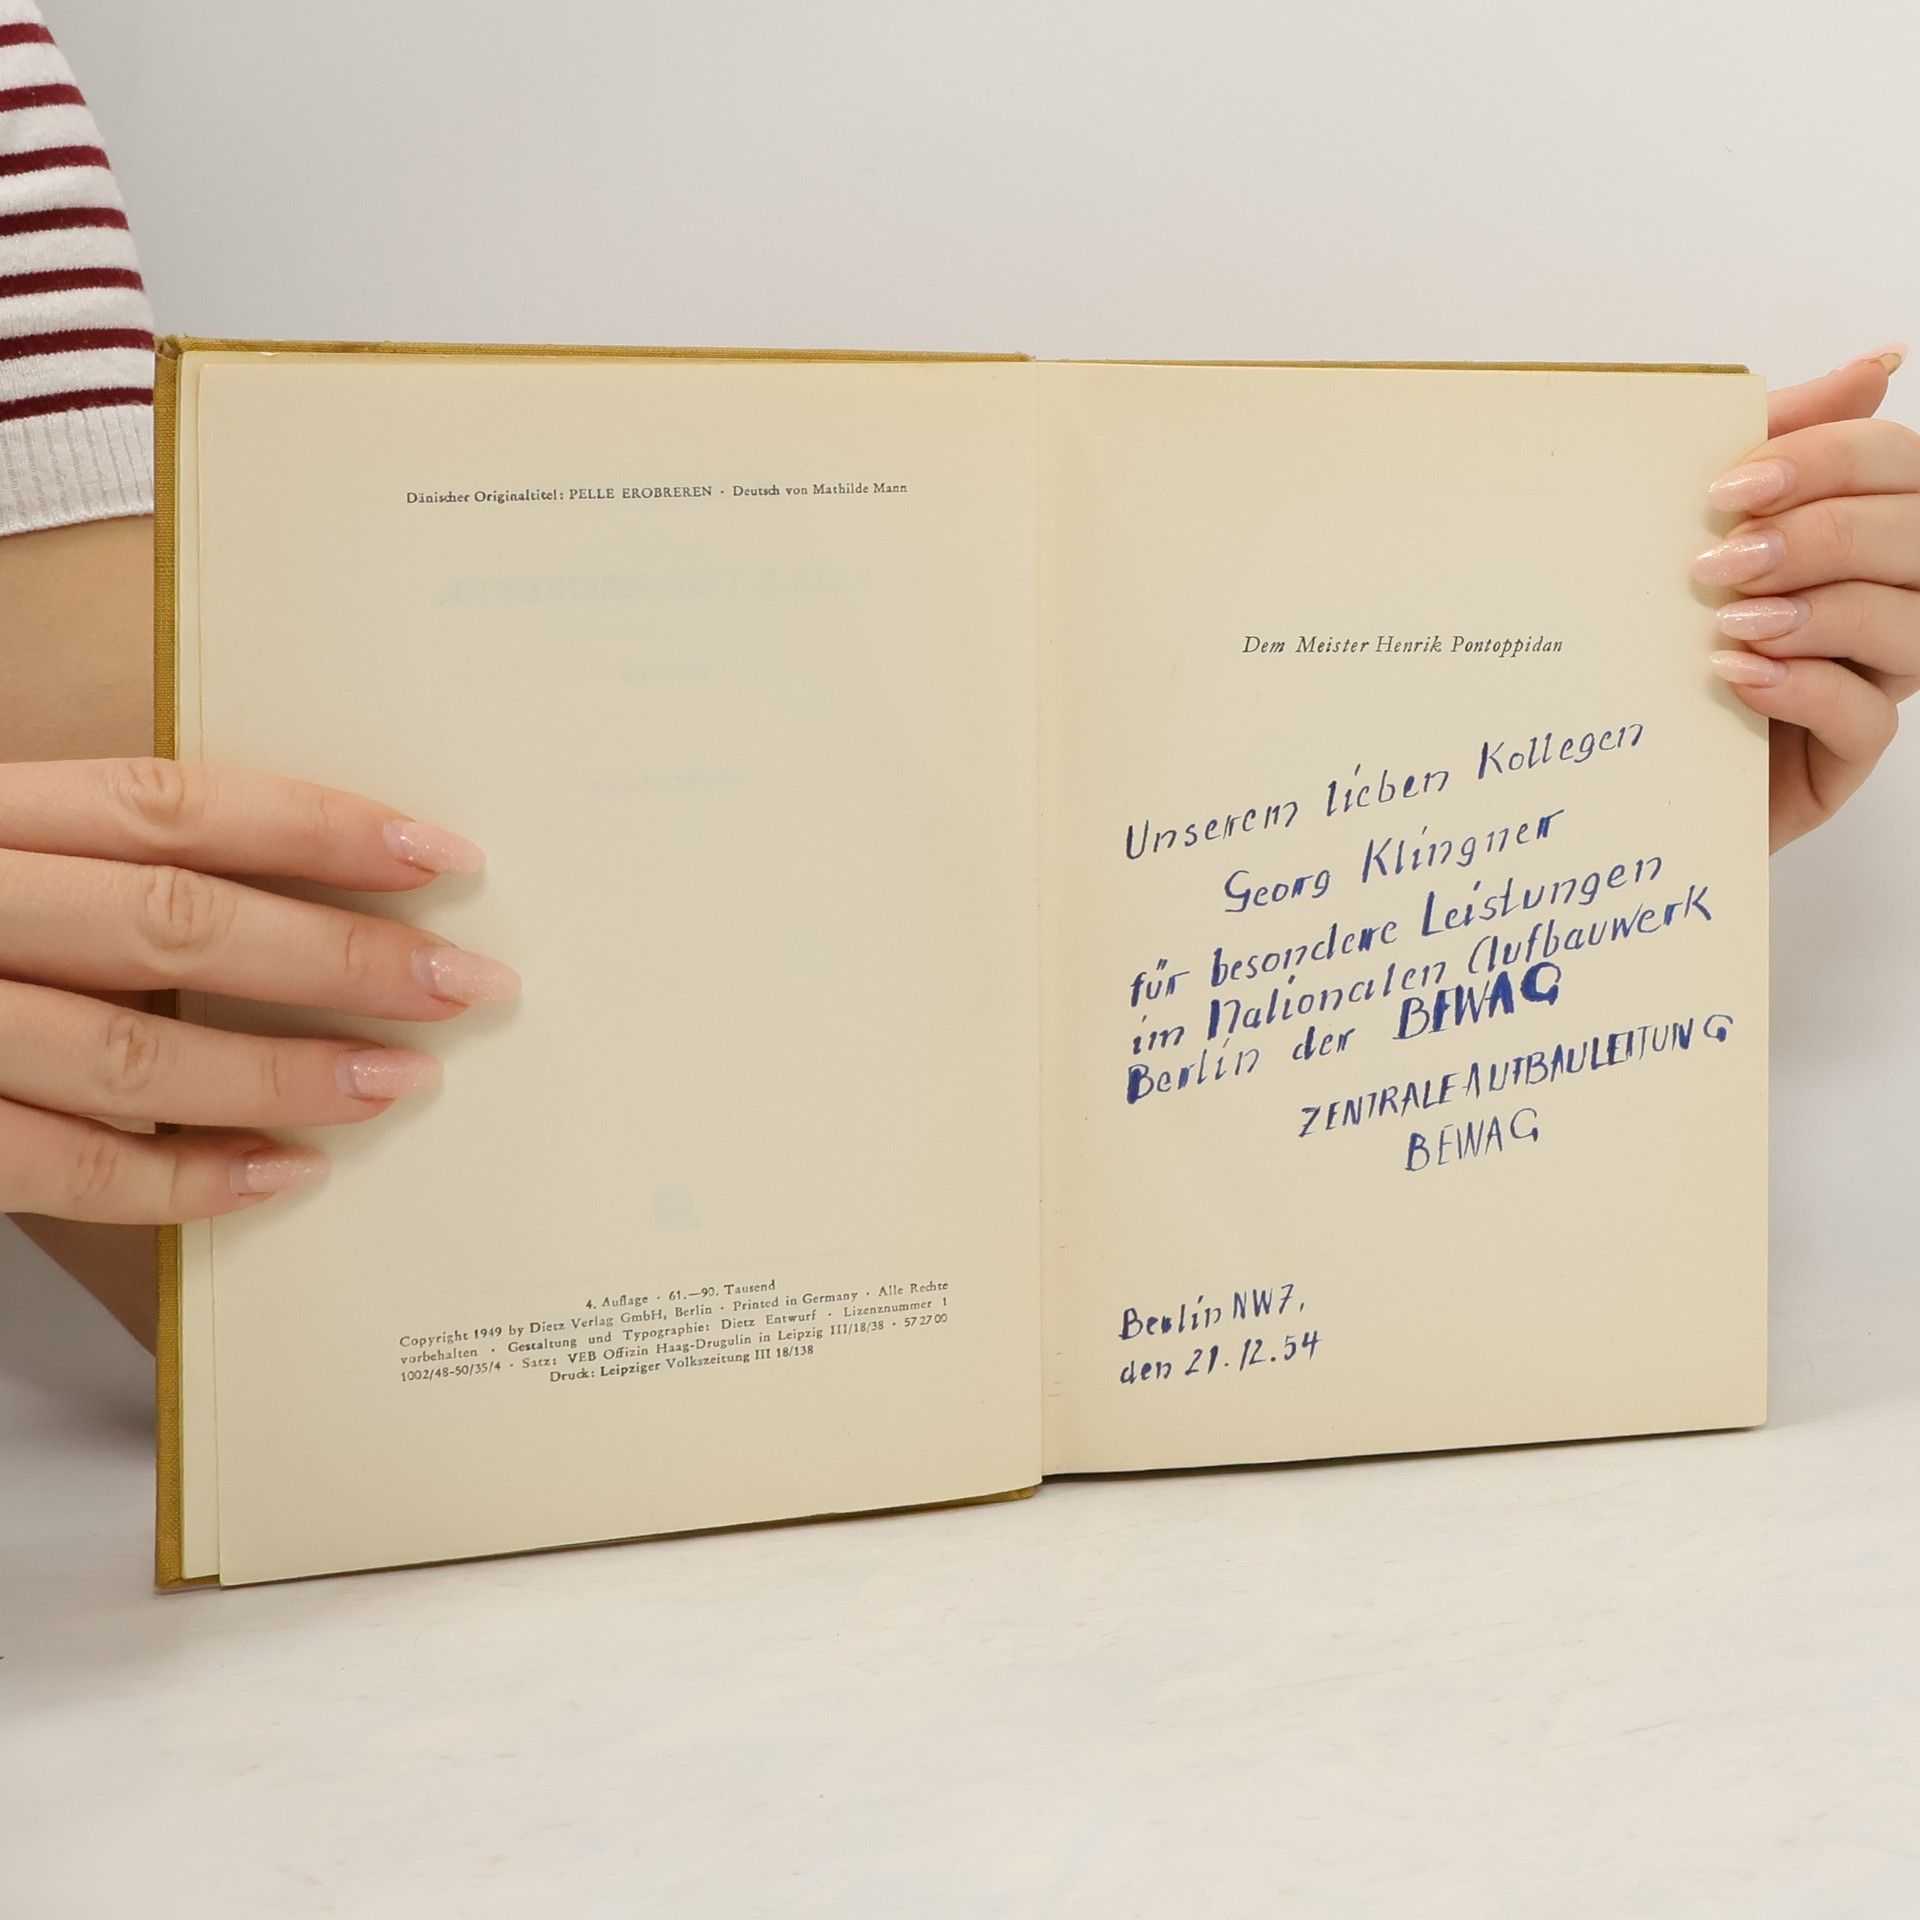 Dänischer Originaltitel: PELLE EROBREREN · Deutsch von Mathilde Mann
4. Auflage · 61.—90. Tausend
Copyright 1949 by Dietz Verlag GmbH, Berlin · Printed in Germany · Alle Rechte
vorbehalten · Gestaltung und Typographie: Dietz Entwurf · Lizenznummer 1
1002/48-50/35/4 · Satz: VEB Offizin Haag-Drugulin in Leipzig III/18/38 · 572700
Druck: Leipziger Volkszeitung III 18/138
Dem Meister Henrik Pontoppidan
Unserem lieben Kollegen
Georg Klingner
für besondere Leistungen
im Nationalen Aufbauwerk
Berlin der BEWAG
ZENTRALE AUFBAULEITUNG
BEWAG
Berlin NW7,
den 21.12.54